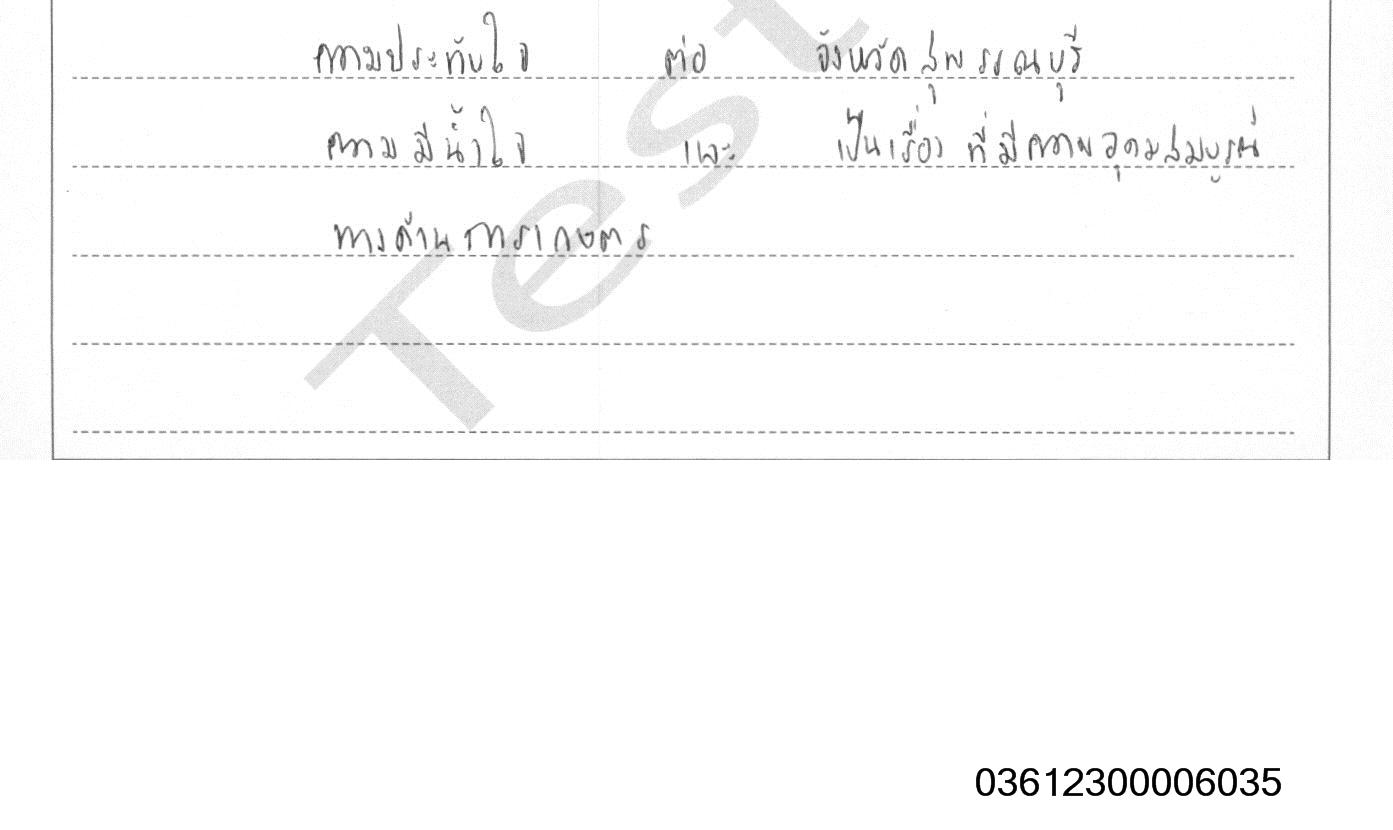 ความประทับใจ ต่อ จังหวัดสุพรรณบุรี
ความมีน้ำใจ และ เป็นเรื่องที่มีความอุดมสมบูรณ์
ทางด้านการเกษตร
Test
03612300006035